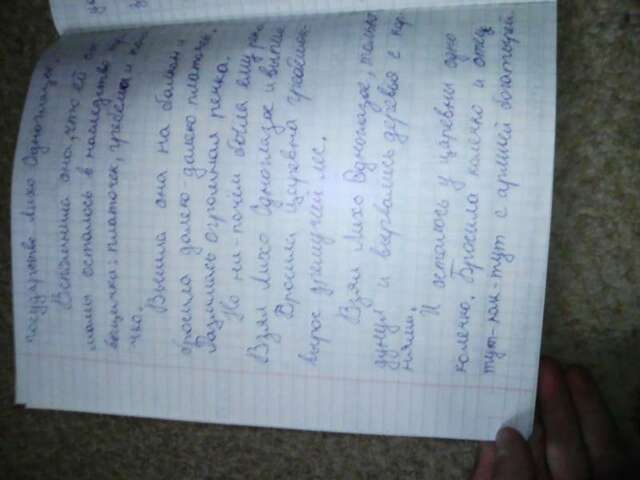 государство Лихо Одноглазое.
Вспомнила она, что ей от
мамы осталось в наследство
вещичка: платочек, гребешок и ко-
чко.
Вышла она на балкон и
бросила далеко-далеко платочек.
Разлилась огромная речка.
Но ни-почём была ему река.
Взял Лихо Одноглазое и выпил
Бросила Царевна гребешок
вырос дремучий лес.
Взял Лихо Одноглазое, только
дунул и вырвались деревья с кор-
нями.
И осталось у царевны одно
колечко. Бросила колечко и отец
тут-как-тут с армией богатырей.